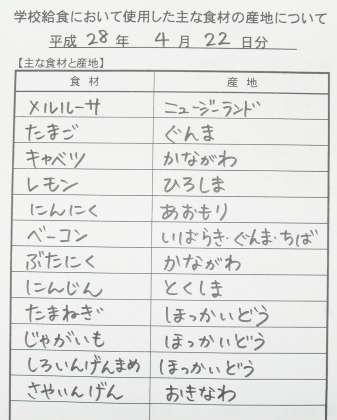 学校給食において使用した主な食材の産地について
平成 28 年 4 月 22 日分
【主な食材と産地】
食材 産地
メルルーサ ニュージーランド
たまご ぐんま
キャベツ かながわ
レモン ひろしま
にんにく あおもり
ベーコン いばらき・ぐんま・ちば
ぶたにく かながわ
にんじん とくしま
たまねぎ ほっかいどう
じゃがいも ほっかいどう
しろいんげんまめ ほっかいどう
さやいんげん おきなわ